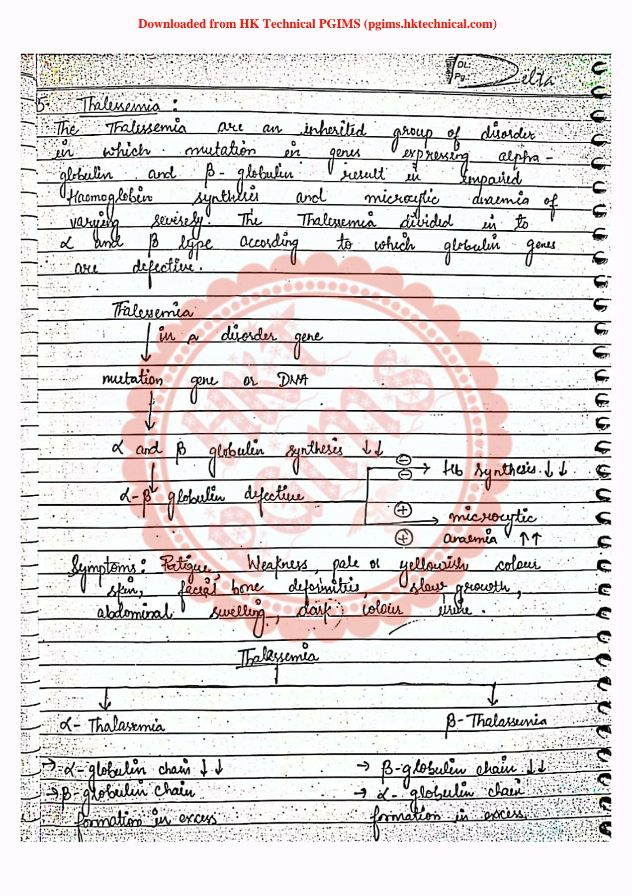 Downloaded from HK Technical PGIMS (pgims.hktechnical.com)
Delta
5- Thalessemia :
The Thalessemia are an inherited group of disorder
in which mutation in genes expressing alpha-
globulin and β-globulin result in impaired
Haemoglobin synthesis and microcytic anaemia of
varying severely. The Thalessemia divided in to
α and β type according to which globulin genes
are defective.
Thalessemia
in a disorder gene
mutation gene or DNA
α and β globulin synthesis ↓↓
⊖ → Hb synthesis ↓↓
⊖
α-β globulin defective
⊕ → microcytic
⊕ anaemia ↑↑
Symptoms: Fatigue, Weakness, pale or yellowish colour
skin, facial bone deformitis, slow growth,
abdominal swelling, dark colour urine.
Thalessemia
α-Thalassemia β-Thalassemia
→ α-globulin chain ↓↓ → β-globulin chain ↓↓
→ β-globulin chain → α-globulin chain
formation in excess formation in excess
HKT
PGIMS